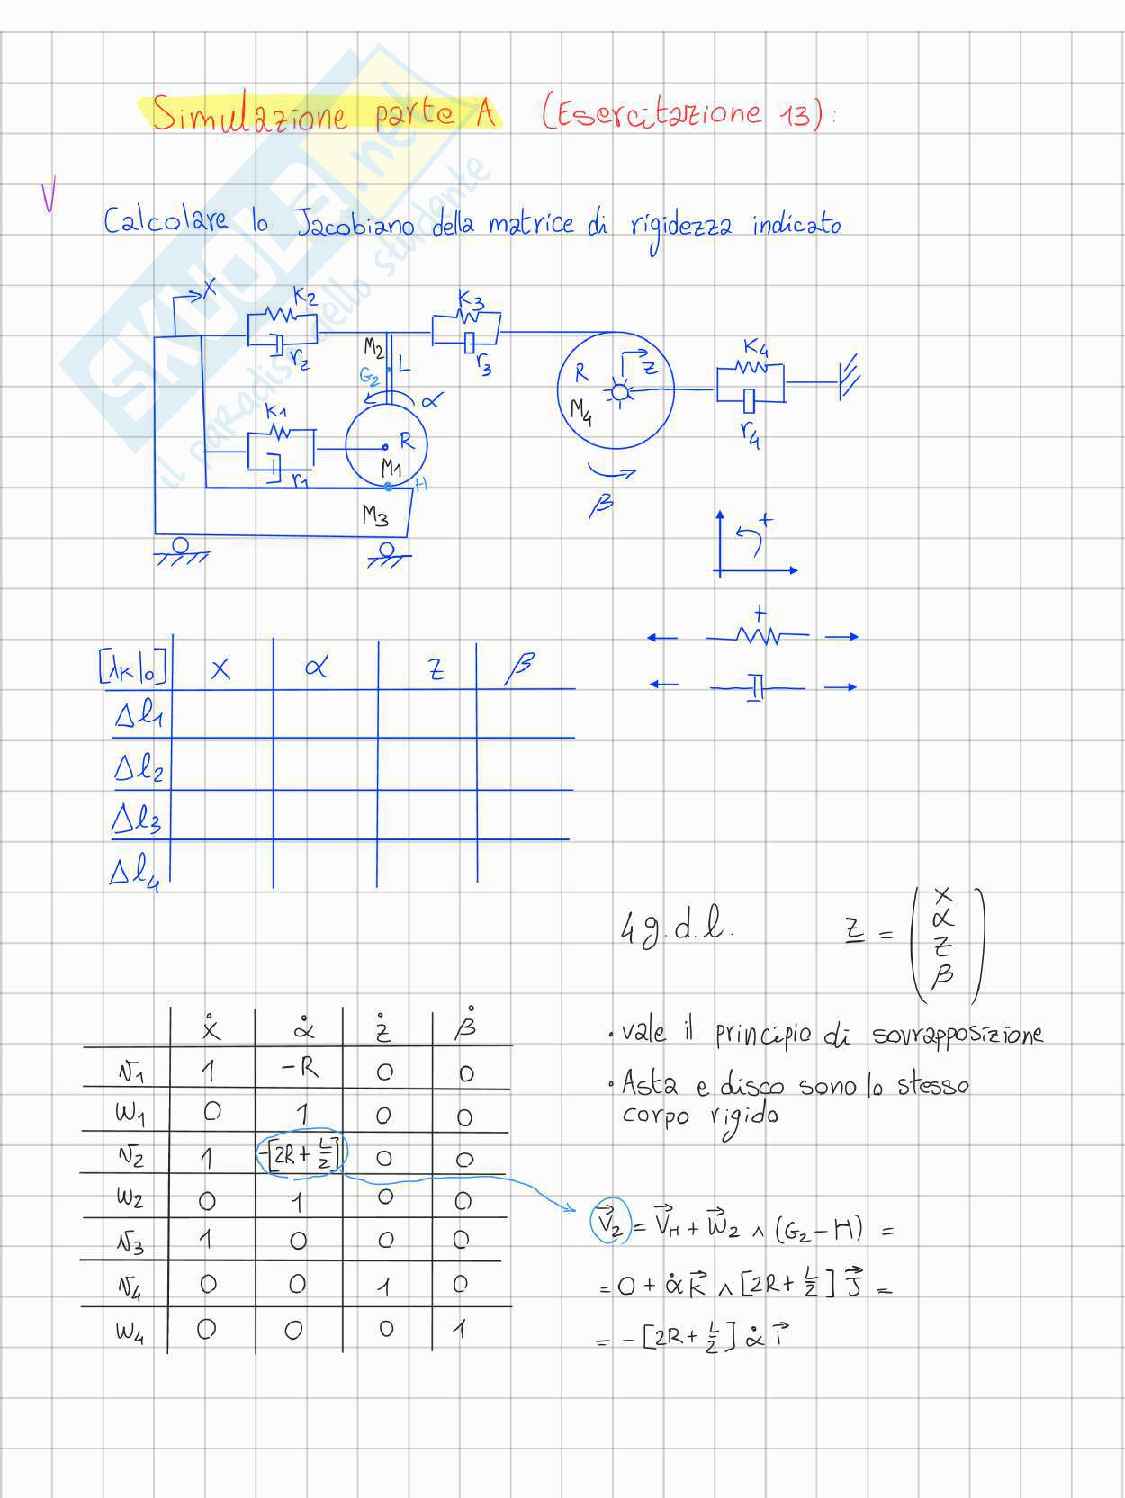 Simulazione parte A (Esercitazione 13):
V
Calcolare lo Jacobiano della matrice di rigidezza indicato
SKUOLA.net
il paradiso dello studente
X
K2
r2
K3
r3
M2
G2
L
α
K1
r1
R
M1
H
M3
R
M4
z
β
K4
r4
+
+
[λK|0] x α z β
Δl1
Δl2
Δl3
Δl4
4 g.d.l. z = (x α z β)
ẋ α̇ ż β̇
v1 1 -R 0 0
ω1 0 1 0 0
v2 1 -[2R + L/2] 0 0
ω2 0 1 0 0
v3 1 0 0 0
v4 0 0 1 0
ω4 0 0 0 1
• vale il principio di sovrapposizione
• Asta e disco sono lo stesso
corpo rigido
V⃗2 = V⃗H + ω⃗2 ∧ (G2 - H) =
= 0 + α̇ K⃗ ∧ [2R + L/2] J⃗ =
= - [2R + L/2] α̇ i⃗